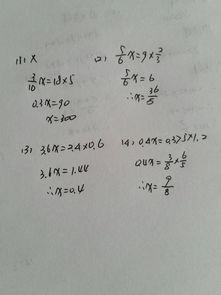 (1) X
3/10 x = 18×5
0.3x = 90
x = 300
(2) 5/6 x = 9 × 2/3
5/6 x = 6
∴x = 36/5
(3) 3.6x = 2.4×0.6
3.6x = 1.44
∴x = 0.4
(4) 0.4x = 0.375×1.2
0.4x = 3/8 × 6/5
∴x = 9/8